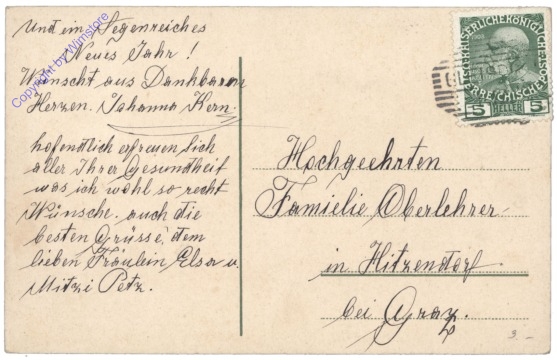 Und ein Segenreiches
Neues Jahr!
Wünscht aus Dankbaren
Herzen. Johanna Kern.
hofendlich erfreuen sich
aller Ihrer Gesundheit
was ich wohl so recht
Wünsche. auch die
besten Grüsse, dem
lieben Fräulein Elsa u.
Mitzi Petz.
Hochgeehrten
Familie Oberlehrer
in Hitzendorf
bei Graz
5 HELLER 5
Copyright by Wimstore
3.-